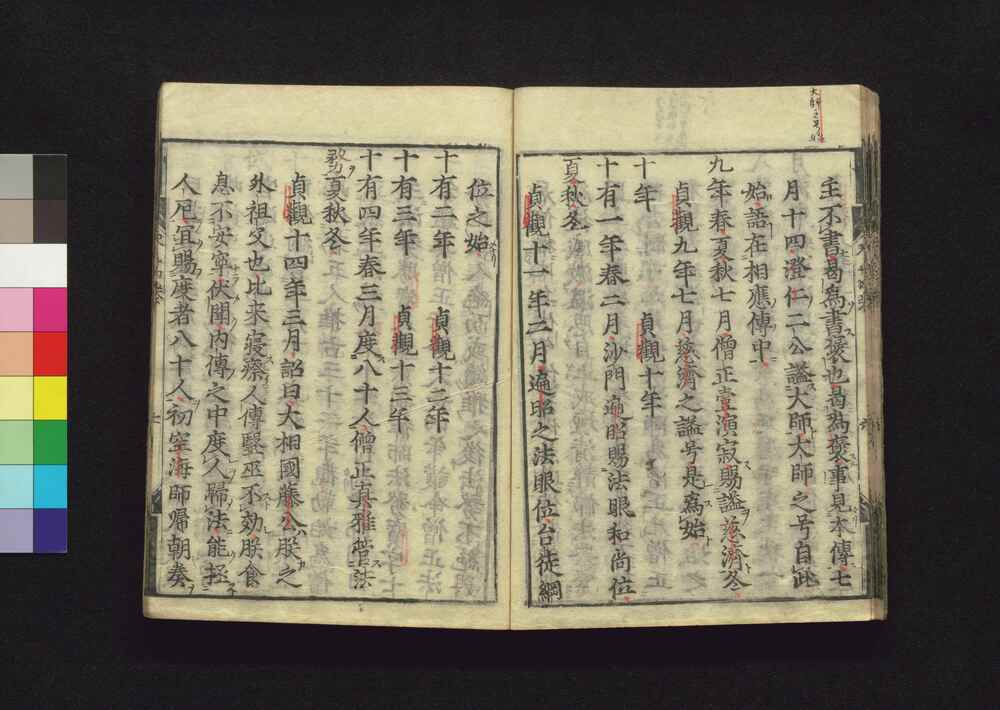 主不書曷為書褒也曷為褒事見本傳七
月十四澄仁二公謚大師大師之号自此
始語在相應傳中
九年春夏秋七月僧正壹演寂賜謚慈濟冬
貞觀九年七月慈濟之謚号是為始
十年　貞觀十年
十有一年春二月沙門遍昭賜法眼和尚位
夏秋冬
貞觀十一年二月遍昭之法眼位台徒綱
位之始
十有二年　貞觀十二年
十有三年　貞觀十三年
十有四年春三月度八十人僧正真雅菅法
務夏秋冬
貞觀十四年三月詔曰大相國藤公朕之
外祖父也比来寝瘵人傳毉巫不効朕食
息不安寧伏聞内傳之中度人歸法能拯
人厄宜賜度者八十人初空海師帰朝奏